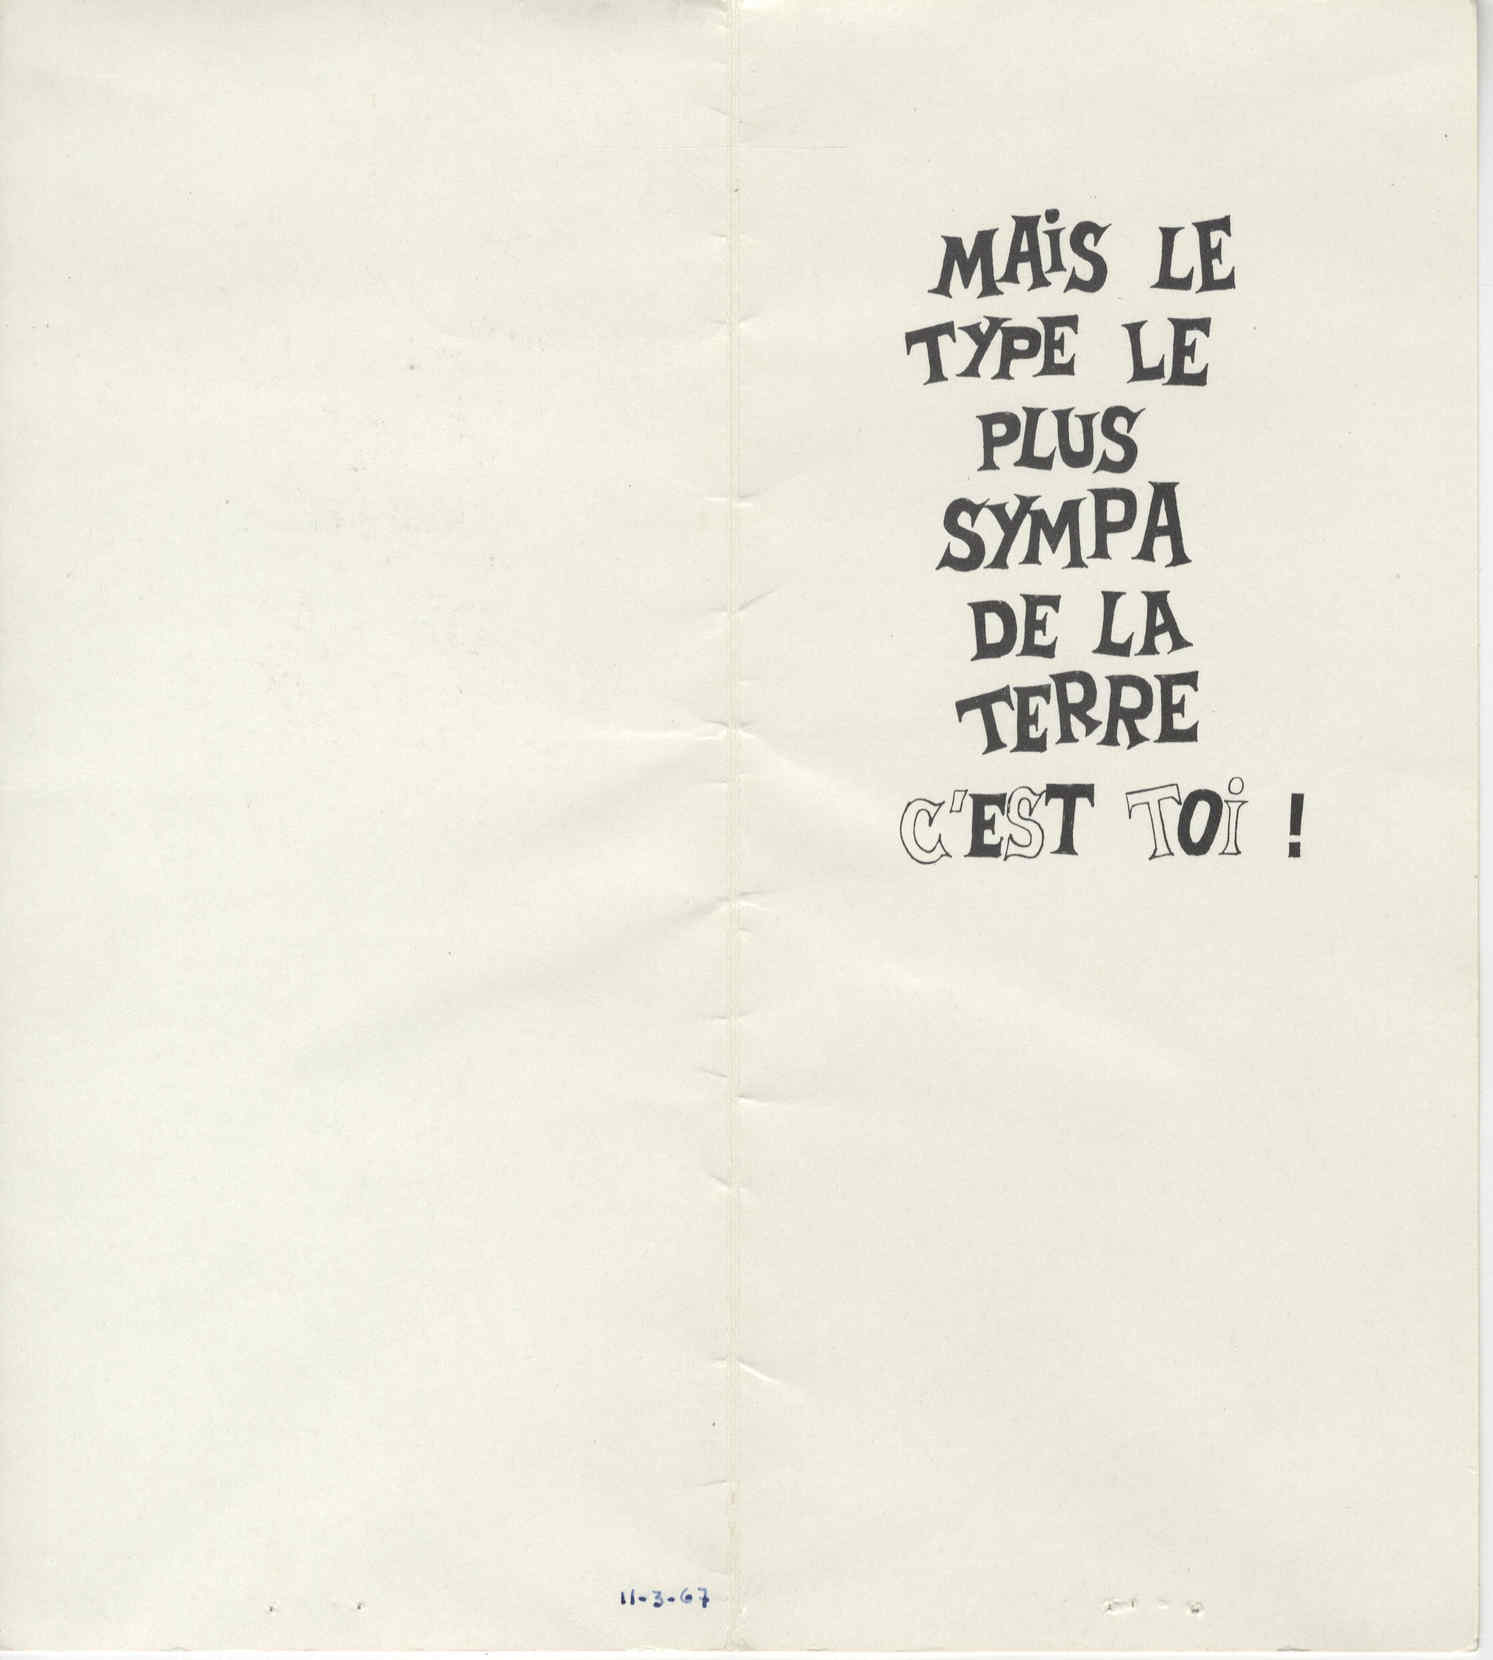 MAiS LE
TYPE LE
PLUS
SYMPA
DE LA
TERRE
C'EST TOi !
11-3-67